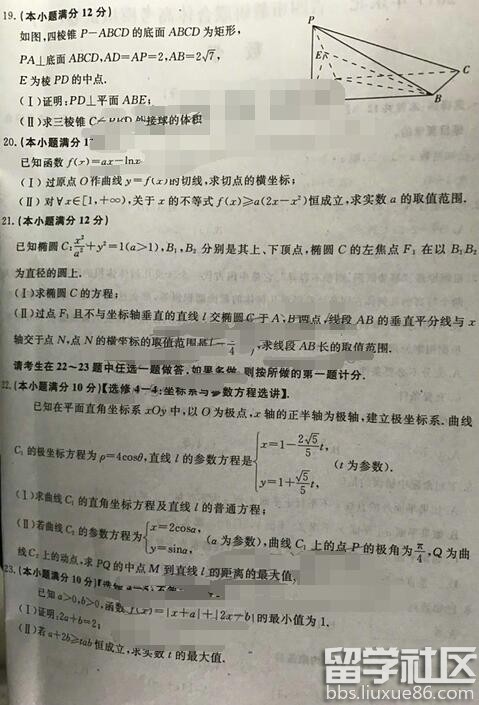 19.(本小题满分12分)
如图,四棱锥P-ABCD的底面ABCD为矩形,
PA⊥底面ABCD,AD=AP=2,AB=2√7,
E为棱PD的中点.
(Ⅰ)证明:PD⊥平面ABE;
(Ⅱ)求三棱锥C 外接球的体积
P
E
C
B
20.(本小题满分1
已知函数f(x)=ax-lnx
(Ⅰ)过原点O作曲线y=f(x)的切线,求切点的横坐标;
(Ⅱ)对∀x∈[1,+∞),关于x的不等式f(x)≥a(2x-x²)恒成立,求实数a的取值范围.
21.(本小题满分12分)
已知椭圆C:x²/a²+y²=1(a>1),B₁,B₂分别是其上、下顶点,椭圆C的左焦点F₁在以B₁B₂
为直径的圆上.
(Ⅰ)求椭圆C的方程;
(Ⅱ)过点F₁且不与坐标轴垂直的直线l交椭圆C于A、B两点,线段AB的垂直平分线与x
轴交于点N,点N的横坐标的取值范围是 4 ,求线段AB长的取值范围.
请考生在22~23题中任选一题做答.如果多做,则按所做的第一题计分.
22.(本小题满分10分)【选修4-4:坐标系与参数方程选讲】.
已知在平面直角坐标系xOy中,以O为极点,x轴的正半轴为极轴,建立极坐标系.曲线
C₁的极坐标方程为ρ=4cosθ,直线l的参数方程是{x=1-(2√5/5)t, y=1+(√5/5)t, (t为参数).
(Ⅰ)求曲线C₁的直角坐标方程及直线l的普通方程;
(Ⅱ)若曲线C₂的参数方程为{x=2cosα, y=sinα, (α为参数),曲线C₁上的点P的极角为π/4,Q为曲
线C₂上的动点,求PQ的中点M到直线l的距离的最大值.
23.(本小题满分10分)
已知a>0,b>0,函数f(x)=|x+a|+|2x-b|的最小值为1.
(Ⅰ)证明:2a+b=2;
(Ⅱ)若a+2b≥tab恒成立,求实数t的最大值.
留学社区
bbs.liuxue86.com